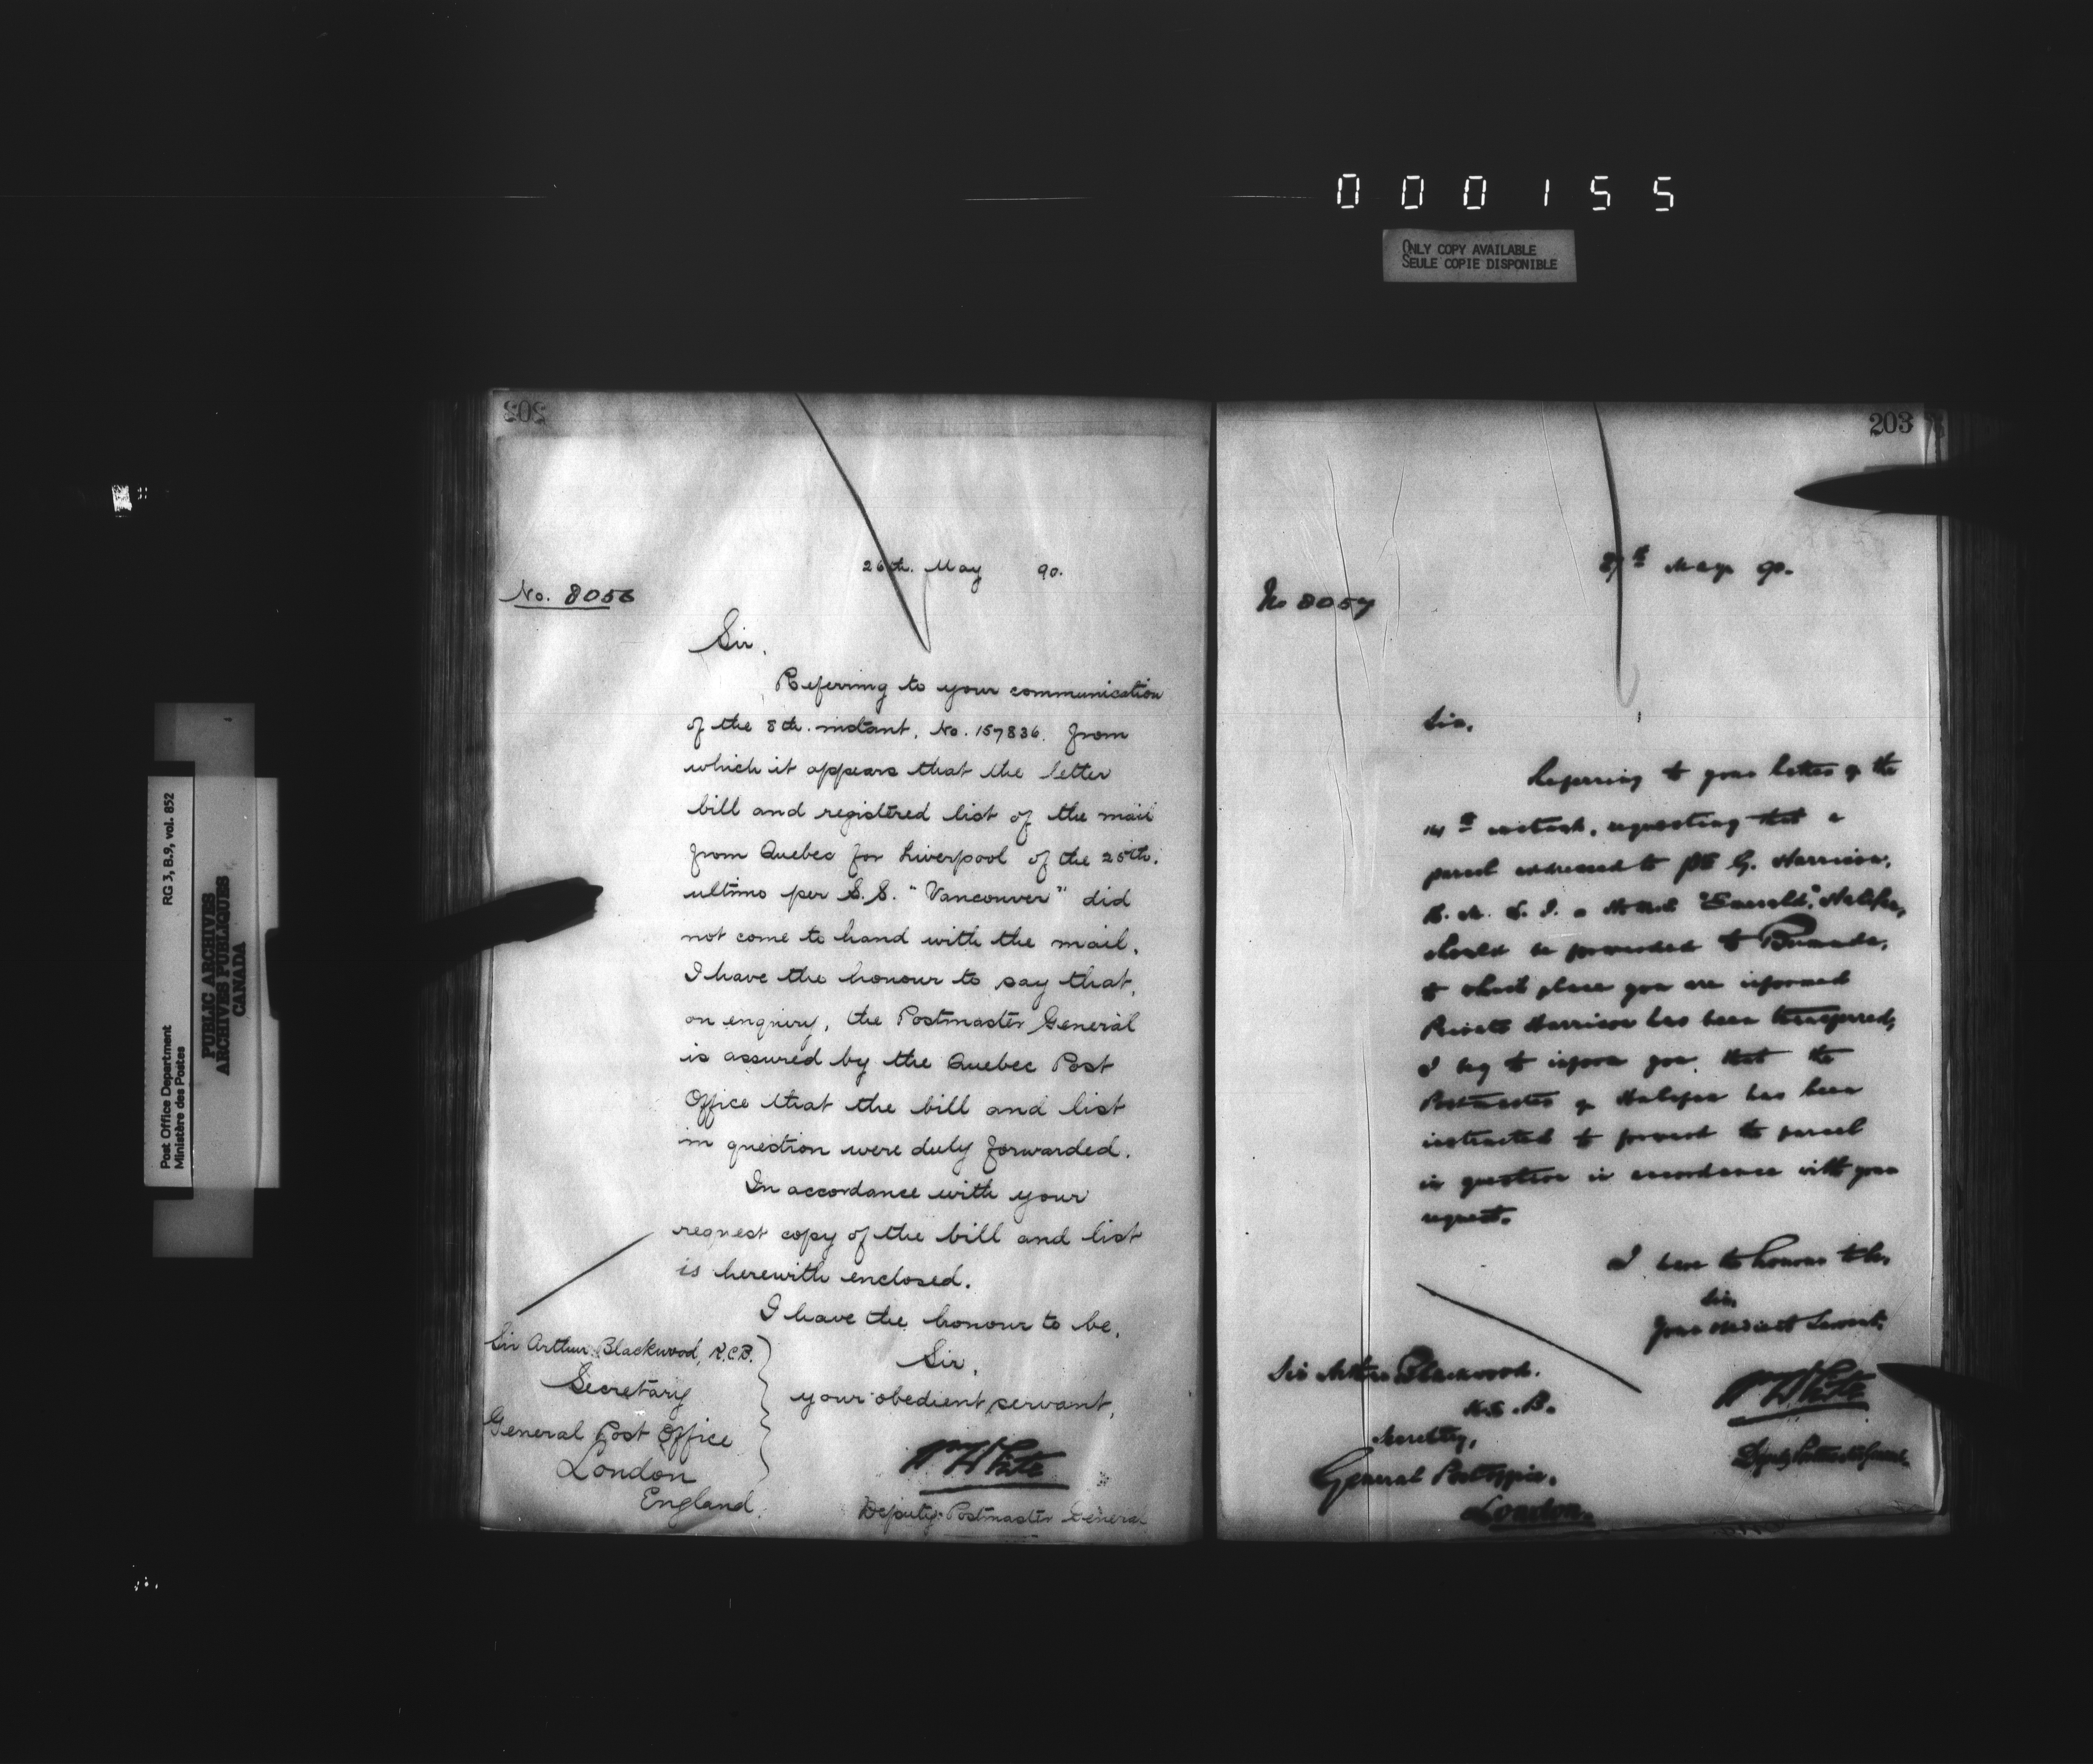 000155
ONLY COPY AVAILABLE
SEULE COPIE DISPONIBLE
Post Office Department
Ministère des Postes
RG 3, B.9, vol. 852
PUBLIC ARCHIVES
ARCHIVES PUBLIQUES
CANADA
202
26th. May 90.
No. 8056
Sir,
Referring to your communication
of the 8th. instant, No. 157836. from
which it appears that the letter
bill and registered list of the mail
from Quebec for Liverpool of the 25th.
ultimo per S.S. "Vancouver" did
not come to hand with the mail,
I have the honour to say that,
on enquiry, the Postmaster General
is assured by the Quebec Post
Office that the bill and list
in question were duly forwarded.
In accordance with your
request copy of the bill and list
is herewith enclosed.
I have the honour to be,
Sir,
your obedient servant,
Wm White
Deputy Postmaster General
Sir Arthur Blackwood, K.C.B.
Secretary
General Post Office
London
England.
203
May 90.
No 8057
Sir,
Referring to your letter of the
14th instant, requesting that a
parcel addressed to Pte G. Harrison,
R. M. L. I. "Emerald," Halifax,
should be forwarded to Bermuda,
to which place you are informed
Private Harrison has been transferred,
I beg to inform you that the
Postmaster of Halifax has been
instructed to forward the parcel
in question in accordance with your
request.
I have the honour to be,
Sir,
Your obedient Servant,
Wm White
Deputy Postmaster General
Sir Arthur Blackwood.
K.C.B.
Secretary,
General Post Office.
London.